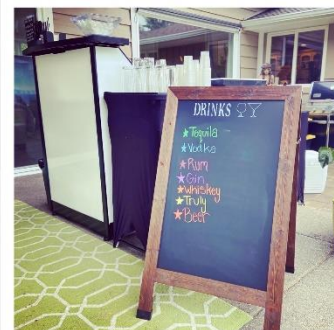 DRINKS
Tequila
Vodka
Rum
Gin
Whiskey
Truly
Beer